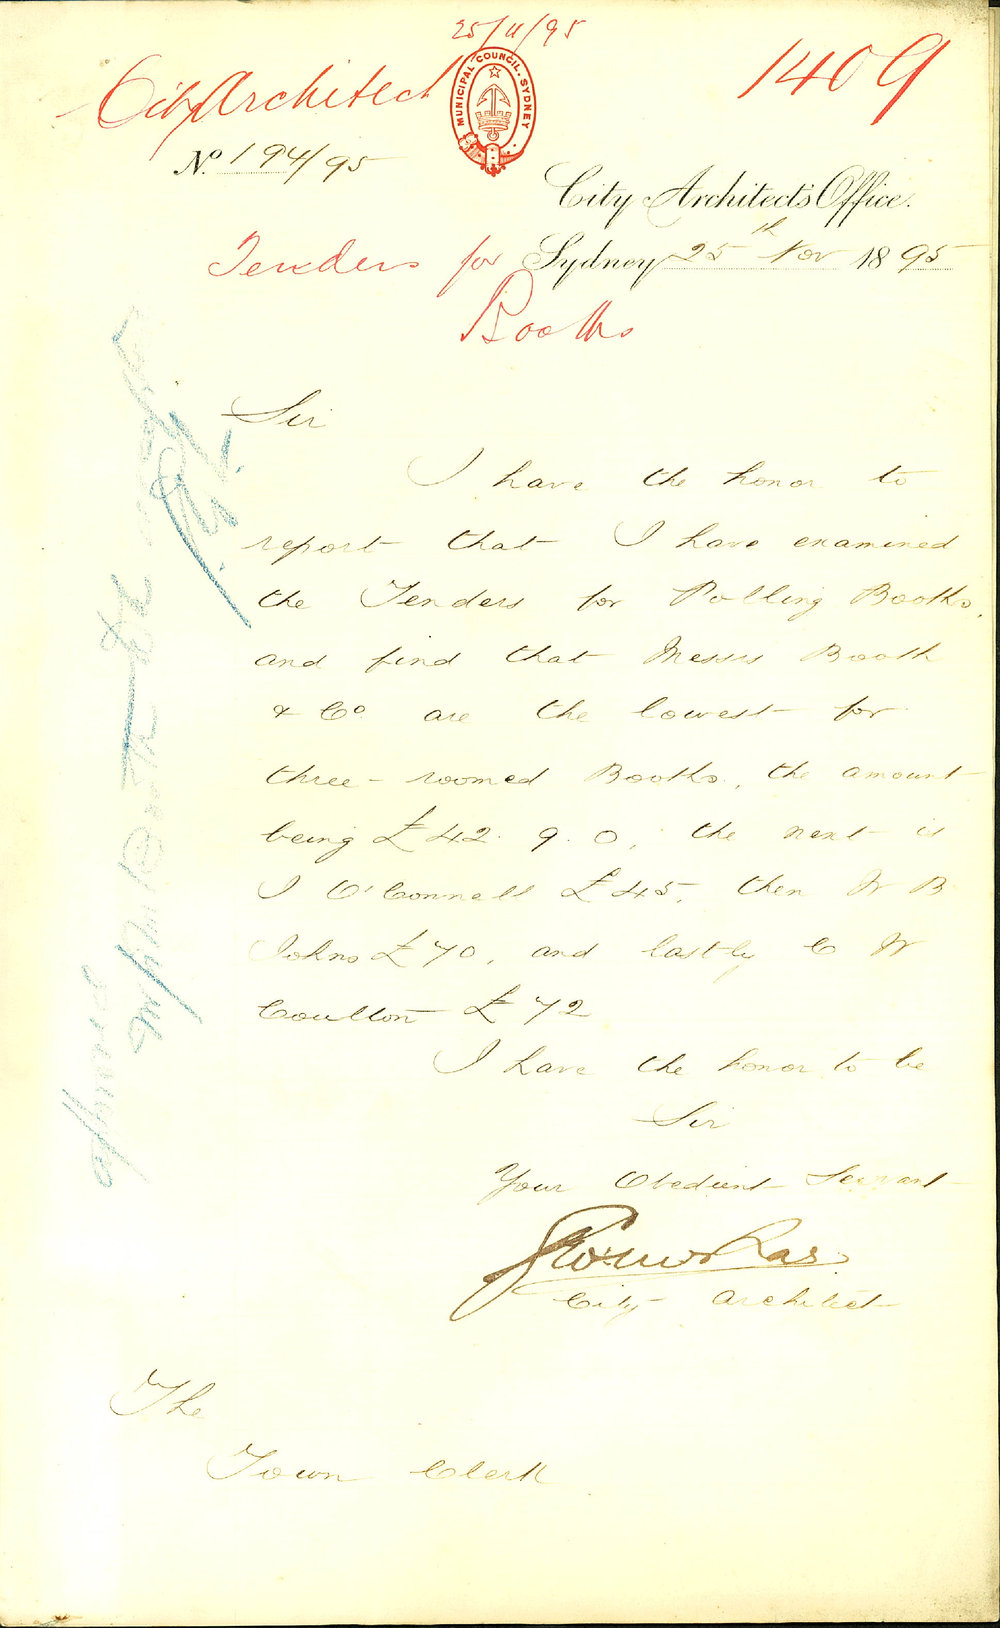 25/11/95
City Architect
1409
MUNICIPAL COUNCIL. SYDNEY
No. 194/95
City Architect's Office.
Tenders for
Sydney 25th Nov 1895
Booths
Sir
I have the honor to
report that I have examined
the Tenders for Polling Booths,
and find that Messrs Booth
& Co are the lowest for
three-roomed Booths, the amount
being £42. 9. 0, the next is
J O'Connell £45, then W B
Johns £70, and lastly C W
Coulton £72
I have the honor to be
Sir
Your Obedient Servant
City Architect
The
Town Clerk